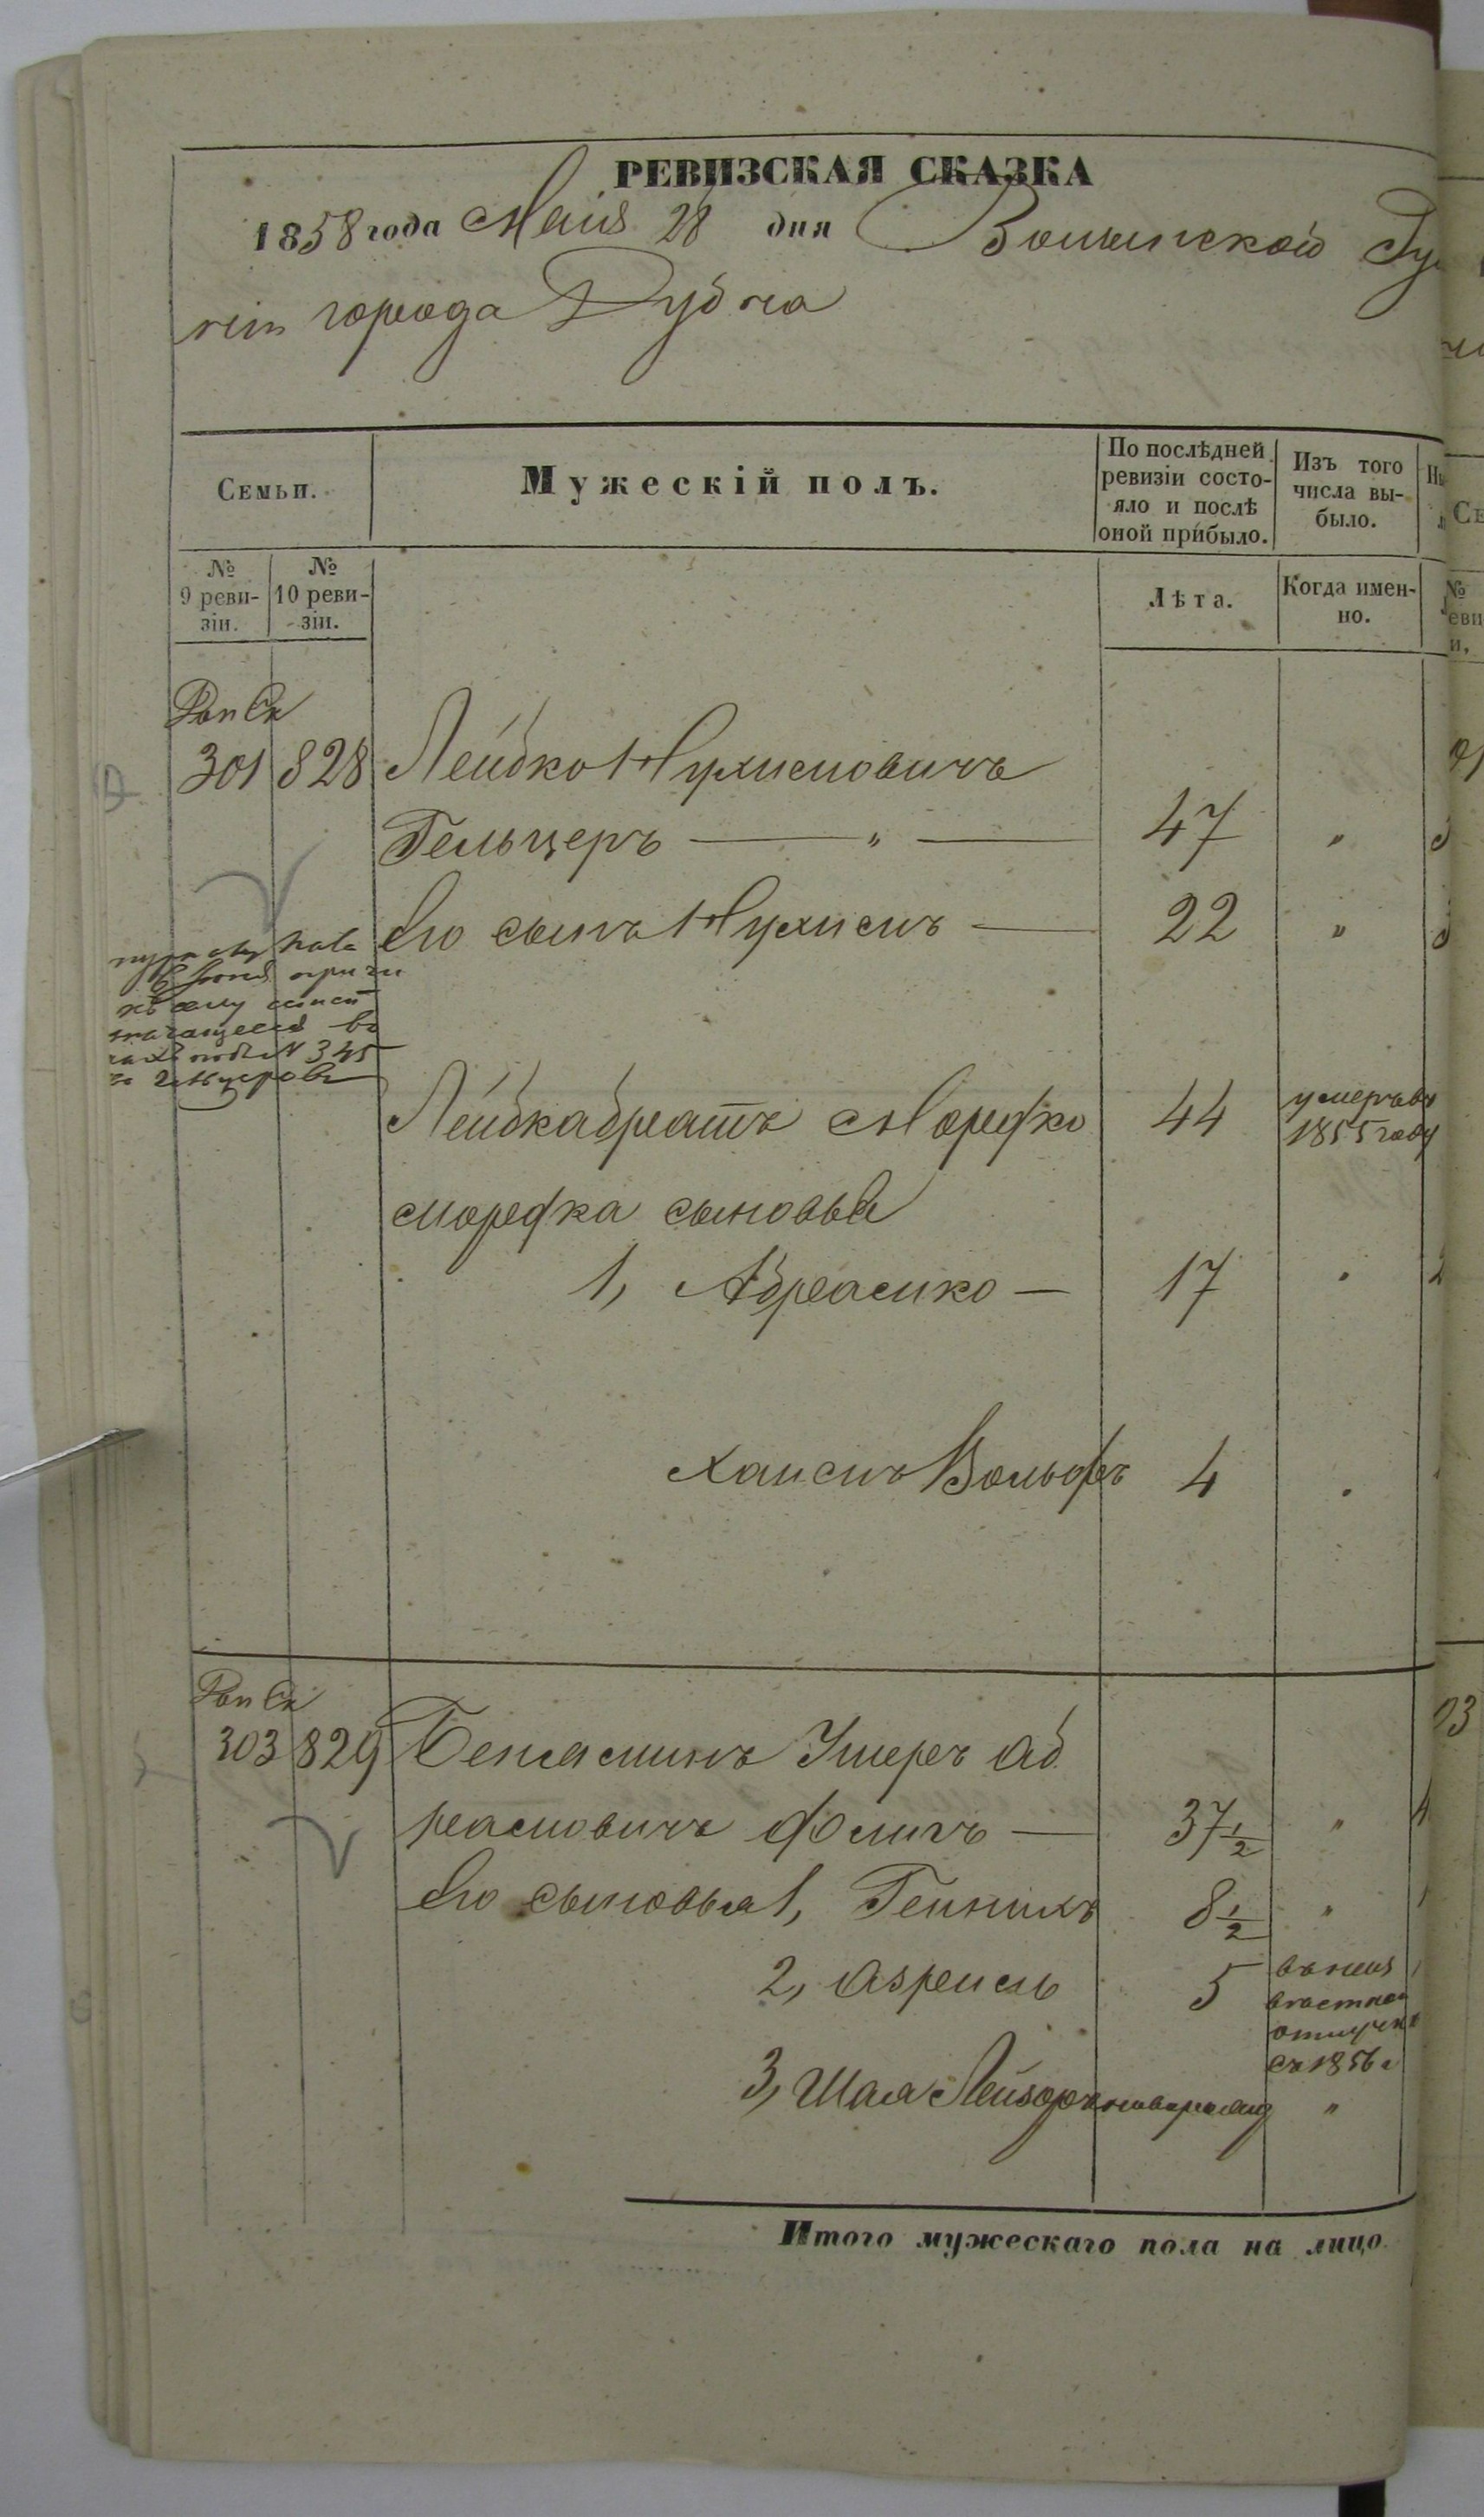 РЕВИЗСКАЯ СКАЗКА
1858 года Маія 28 дня Волынской Гу
ніи города Дубна
Семьи.
Мужескій полъ.
По послѣдней ревизіи состо-
яло и послѣ
оной прибыло.
Изъ того
числа вы-
было.
№
9 реви-
зіи.
№
10 реви-
зіи.
Лѣта.
Когда имен-
но.
301 828 Лейбко Нухимовичъ
Гельцеръ — " — 47 "
Его сынъ Нухимъ — 22 "
№ 345
Лейбка братъ Мордко 44 умеръ въ
1855 году
Мордка сыновья
1, Абрамко — 17
Хаимъ Вольфъ 4
303 829 Беньяминъ Ушеръ Аб
рамовичъ Фолигъ — 37 1/2 "
Его сыновья 1, Гейнихъ 8 1/2 "
2, Азреиль 5
отлучкѣ
съ 1856 г
3, Шая Лейзоръ "
Итого мужескаго пола на лицо.